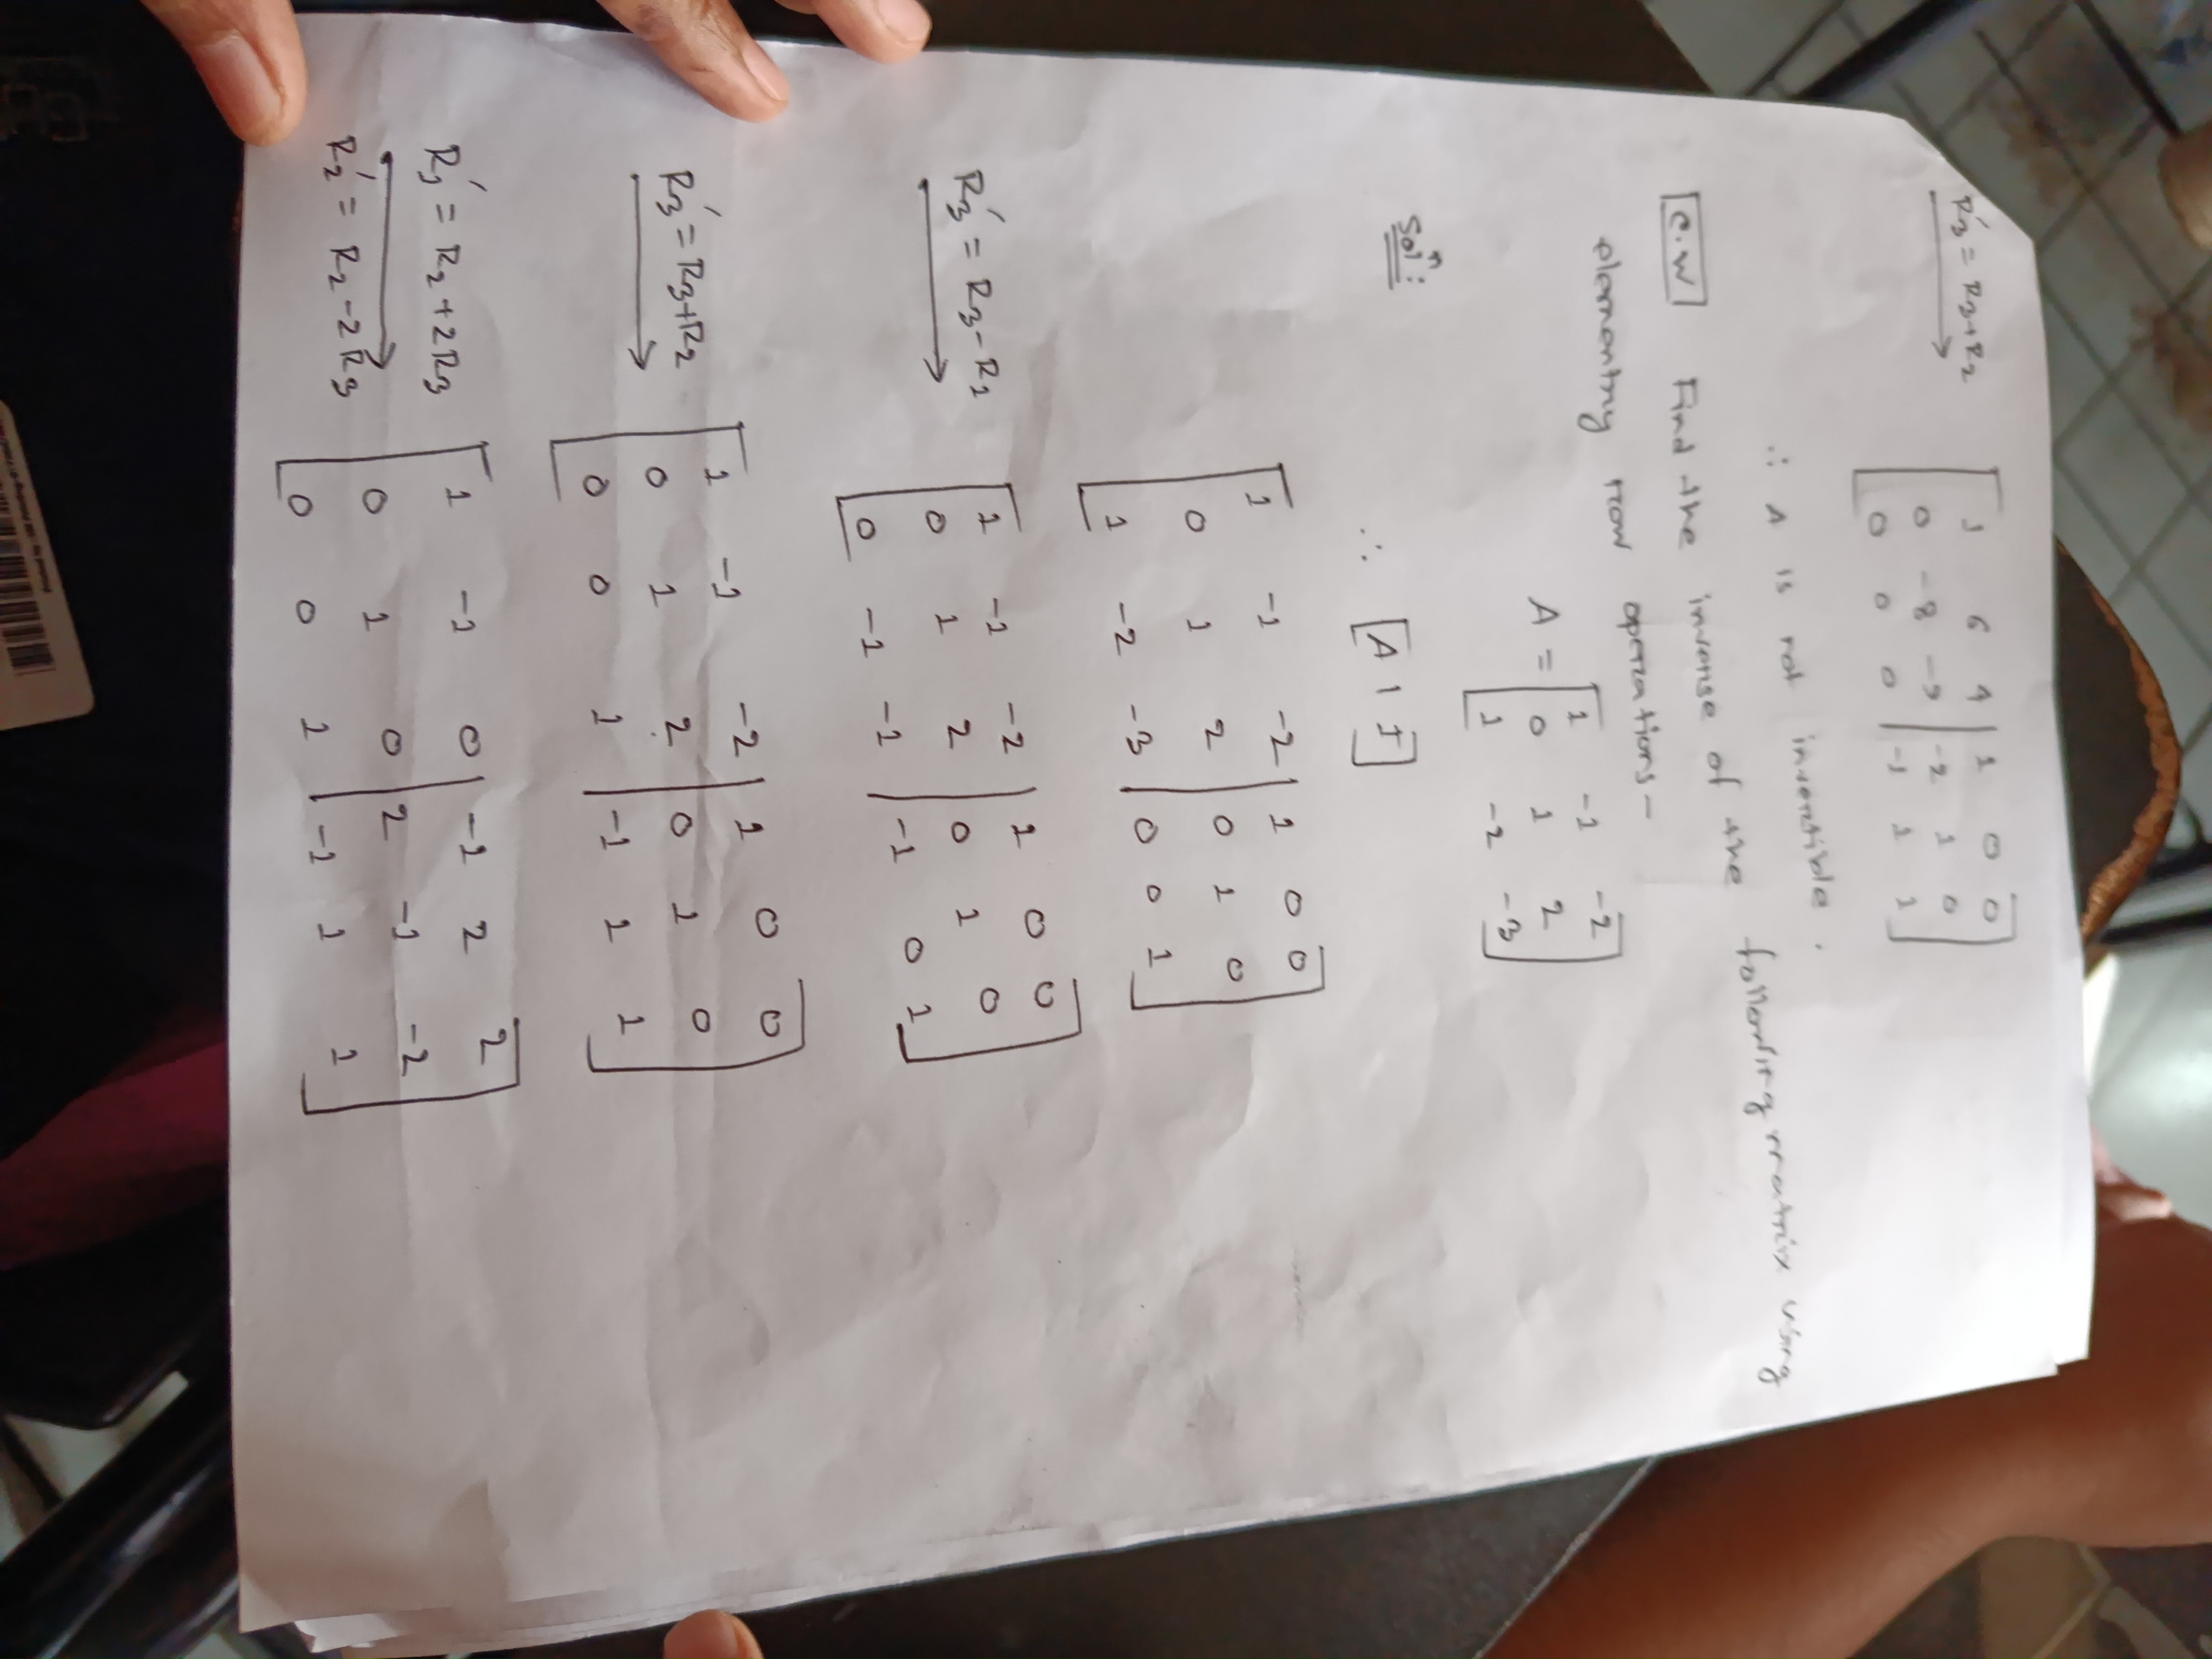 R₃′ = R₃+R₂
[ 1 6 4 | 1 0 0
0 -8 -9 | -2 1 0
0 0 0 | -1 1 1 ]
∴ A is not invertible.
C.W Find the inverse of the following matrix using
elementry row operations-
A = [ 1 -1 -2
0 1 2
1 -2 -3 ]
Solⁿ:
∴ [A | I]
[ 1 -1 -2 | 1 0 0
0 1 2 | 0 1 0
1 -2 -3 | 0 0 1 ]
R₃′ = R₃-R₁
[ 1 -1 -2 | 1 0 0
0 1 2 | 0 1 0
0 -1 -1 | -1 0 1 ]
R₃′ = R₃+R₂
[ 1 -1 -2 | 1 0 0
0 1 2 | 0 1 0
0 0 1 | -1 1 1 ]
R₁′ = R₂+2R₃
R₂′ = R₂-2R₃
[ 1 -1 0 | -1 2 2
0 1 0 | 2 -1 -2
0 0 1 | -1 1 1 ]